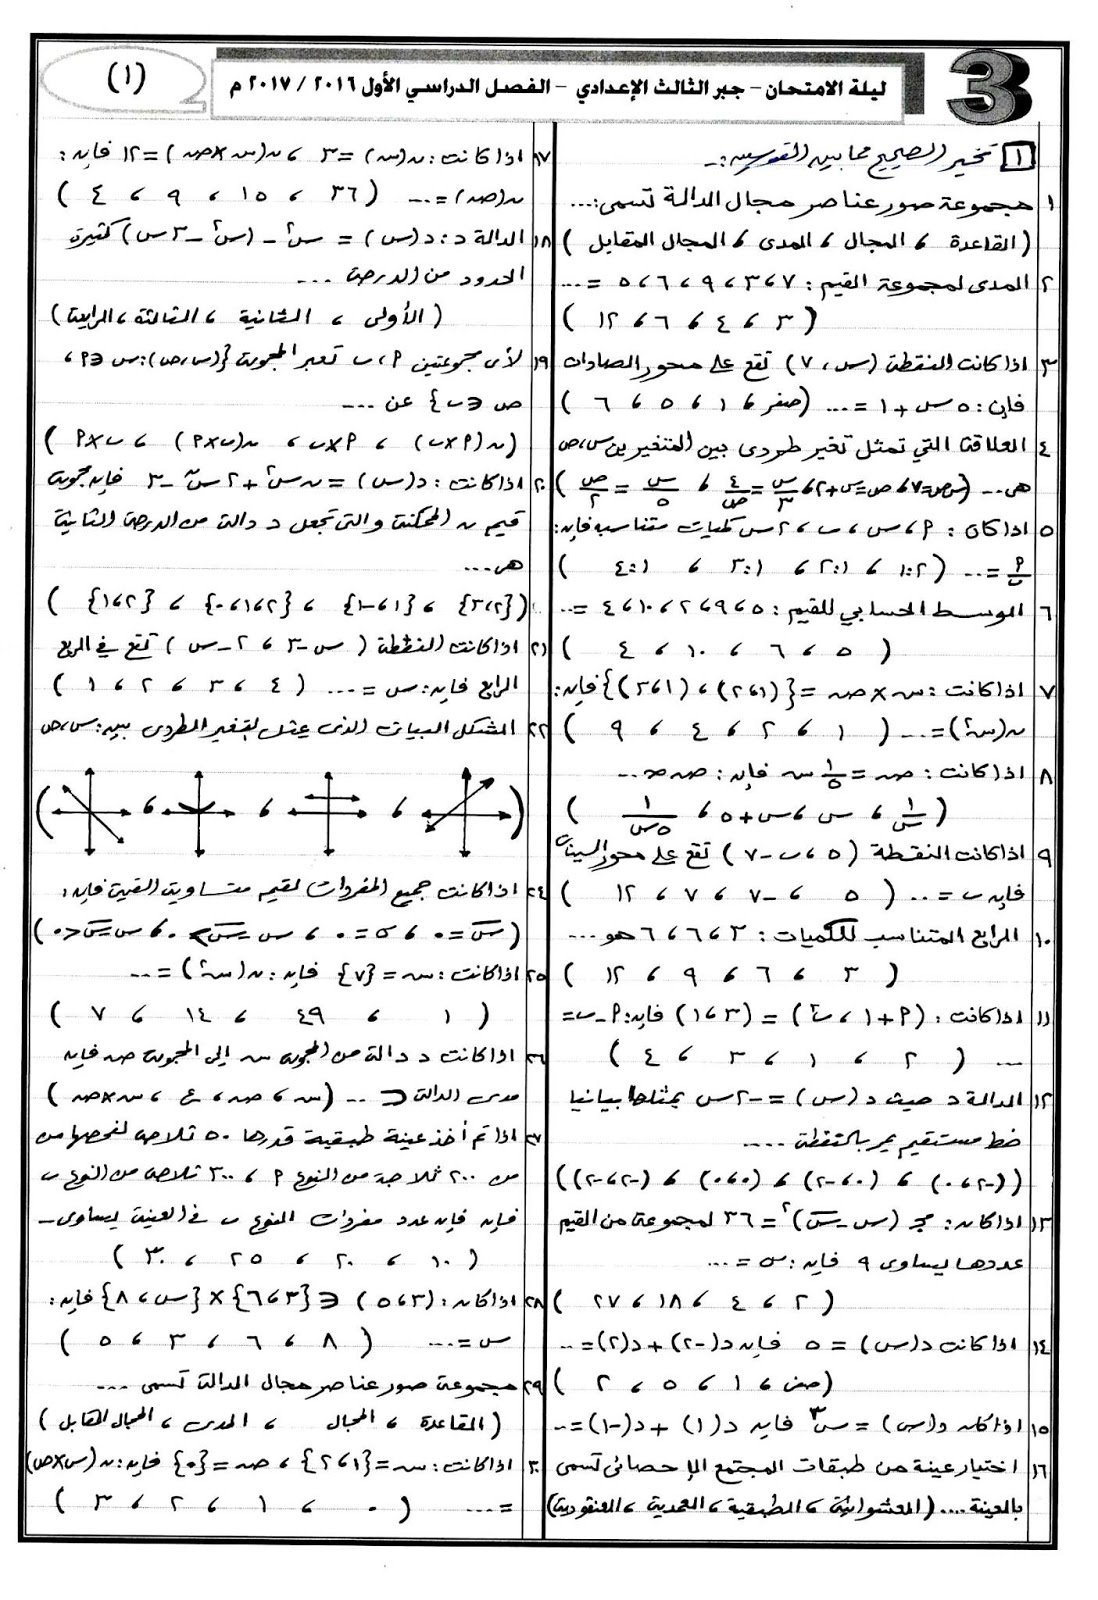 3
ليلة الامتحان – جبر الثالث الإعدادي – الفصل الدراسي الأول ٢٠١٦ / ٢٠١٧ م
(١)
١ تخير الصحيح مما بين القوسين :-
١ مجموعة صور عناصر مجال الدالة تسمى :...
( القاعدة ، المجال ، المدى ، المجال المقابل )
٢ المدى لمجموعة القيم : ٧ ، ٣ ، ٩ ، ٦ ، ٥ = ...
( ٣ ، ٤ ، ٦ ، ١٢ )
٣ اذا كانت النقطة (س ، ٧) تقع على محور الصادات
فإن : ٥ س + ١ = ... (صفر ، ١ ، ٥ ، ٦ )
٤ العلاقة التي تمثل تغير طردى بين المتغيرين س، ص
هى ... (س ص = ٧ ، ص = س + ٢ ، س/٣ = ٤/ص ، س/٥ = ص/٢ )
٥ اذا كان : ٩ ، س ، ب ، ٢ س كميات متناسبة فإن :
٩/ب = ... ( ١:٢ ، ٢:١ ، ٣:١ ، ٤:١ )
٦ الوسط الحسابي للقيم : ٥ ، ٩ ، ٢ ، ١٠ ، ٤ = ...
( ٥ ، ٦ ، ١٠ ، ٤ )
٧ اذا كانت : س × ص = {(١ ، ٢) ، (١ ، ٣)} فإن :
ن(س٢) = ... ( ١ ، ٢ ، ٤ ، ٩ )
٨ اذا كانت : ص = ١/٥ س فإن : ص ∝ ...
( ١/س ، س ، س + ٥ ، ١/٥س )
٩ اذا كانت النقطة ( ٥ ، ب - ٧ ) تقع على محور السينات
فإن ب = ... ( ٥ ، -٧ ، ٧ ، ١٢ )
١٠ الرابع المتناسب للكميات : ٣ ، ٦ ، ٦ هو ...
( ٣ ، ٦ ، ٩ ، ١٢ )
١١ اذا كانت : (٩ + ١ ، ب٣) = (٣ ، ١) فإن : ٩ - ب =
... ( ٢ ، ١ ، ٣ ، ٤ )
١٢ الدالة د حيث د (س) = -٢ س يمثلها بيانيا
خط مستقيم يمر بالنقطة ....
((-٢ ، ٠) ، (٠ ، -٢) ، (٠ ، ٠) ، (-٢ ، -٢))
١٣ اذا كان : مجـ (س - س̄)٢ = ٣٦ لمجموعة من القيم
عددها يساوى ٩ فإن : σ = ...
( ٢ ، ٤ ، ١٨ ، ٢٧ )
١٤ اذا كانت د(س) = ٥ فإن د(-٢) + د(٢) = ..
(صفر ، ١ ، ٥ ، ٢ )
١٥ اذا كان د(س) = س٣ فإن د(١) + د(-١) = ..
١٦ اختيار عينة من طبقات المجتمع الإحصائى تسمى
بالعينة .... (العشوائية ، الطبقية ، العمدية ، العنقودية)
١٧ اذا كانت : ن(س) = ٣ ، ن(س × ص) = ١٢ فإن :
ن(ص) = ... ( ٣٦ ، ١٥ ، ٩ ، ٤ )
١٨ الدالة د : د(س) = س٢ - (س٢ - ٣ س) كثيرة
الحدود من الدرجة ...
( الأولى ، الثانية ، الثالثة ، الرابعة )
١٩ لأى مجموعتين ٩ ، ب تعبر المجموعة {(س ، ص) : س ∈ ٩ ،
ص ∈ ب} عن ...
(ن(٩ × ب) ، ٩ × ب ، ن(ب × ٩) ، ب × ٩ )
٢٠ اذا كانت : د(س) = س ن + ٢ س٢ - ٣ فإن مجموعة
قيم ن الممكنة والتى تجعل د دالة من الدرجة الثانية
هى ...
({٢ ، ٣} ، {١ ، -١} ، {٢ ، ١ ، ٠} ، {٢ ، ١} )
٢١ اذا كانت النقطة ( س - ٣ ، ٢ - س ) تقع في الربع
الرابع فإن : س = ... ( ٤ ، ٣ ، ٢ ، ١ )
٢٢ الشكل البيانى الذى يمثل التغير الطردى بين : س، ص
( ، ، ، )
٢٤ اذا كانت جميع المفردات لقيم متساوية القيمة فإن :
(س̄ = ٠ ، σ = ٠ ، س - س̄ > ٠ ، س - س̄ < ٠ )
٢٥ اذا كانت : س = {٧} فإن : ن(س٢) = ..
( ١ ، ٤٩ ، ١٤ ، ٧ )
٢٦ اذا كانت د دالة من المجموعة س إلى المجموعة ص فإن
مدى الدالة ⊂ ... (س ، ص ، ع ، س × ص )
٢٧ اذا تم أخذ عينة طبقية قدرها ٥٠ ثلاجة لفحصها من
من ٢٠٠ ثلاجة من النوع ٩ ، ٣٠٠ ثلاجة من النوع ب
فإن فإن عدد مفردات النوع ب في العينة يساوى ..
( ١٠ ، ٢٠ ، ٢٥ ، ٣٠ )
٢٨ اذا كان : (٣ ، ٥) ∈ {٣ ، ٦} × {س ، ٨} فإن :
س = ... ( ٨ ، ٦ ، ٣ ، ٥ )
٢٩ مجموعة صور عناصر مجال الدالة تسمى ...
( القاعدة ، المجال ، المدى ، المجال المقابل )
٣٠ اذا كانت : س = {١ ، ٢} ، ص = {٠} فإن : ن(س × ص)
= ... ( ٠ ، ١ ، ٢ ، ٣ )